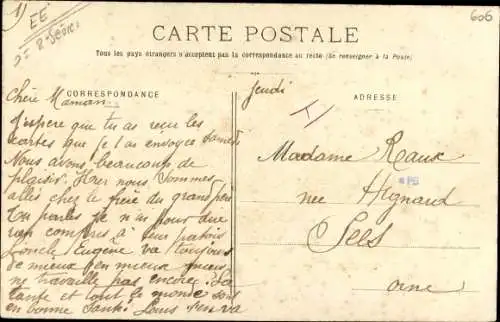 1)
EE
606
CARTE POSTALE
Tous les pays étrangers n'acceptent pas la correspondance au recto (Se renseigner à la Poste)
CORRESPONDANCE
ADRESSE
Jeudi
Chère Maman
J'espere que tu as recu les
cartes que je t'ai envoyes Samedi
Nous avons beaucoup de
plaisir. Hier nous Sommes
allés chez le frère du grand père
Tu parles je n'ai pour due
rien compris à leur patois
l'oncle Eugène va toujours
de mieux en mieux mais
ne travaille pas encore. La
tante et tout le monde sont
en bonne Santé. Louis s'en va
Madame Raux
née Hignaud
Sées
orne